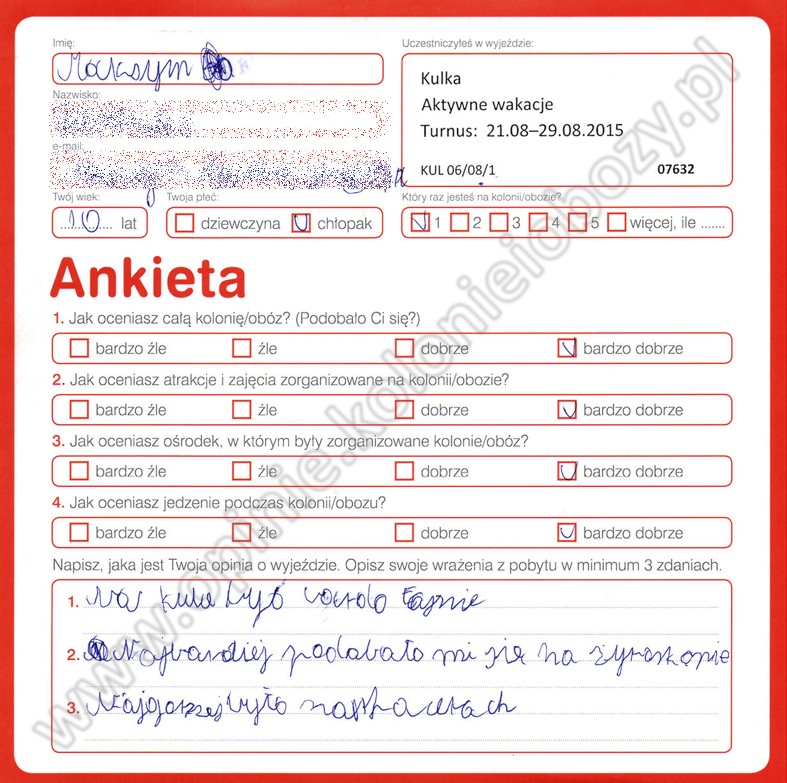 Imię:
Maksym
Uczestniczyłeś w wyjeździe:
Kulka
Aktywne wakacje
Turnus: 21.08–29.08.2015
KUL 06/08/1
07632
Nazwisko:
e-mail:
Twój wiek:
10 lat
Twoja płeć:
dziewczyna chłopak
Który raz jesteś na kolonii/obozie?
1 2 3 4 5 więcej, ile .......
Ankieta
1. Jak oceniasz całą kolonię/obóz? (Podobało Ci się?)
bardzo źle źle dobrze bardzo dobrze
2. Jak oceniasz atrakcje i zajęcia zorganizowane na kolonii/obozie?
bardzo źle źle dobrze bardzo dobrze
3. Jak oceniasz ośrodek, w którym były zorganizowane kolonie/obóz?
bardzo źle źle dobrze bardzo dobrze
4. Jak oceniasz jedzenie podczas kolonii/obozu?
bardzo źle źle dobrze bardzo dobrze
Napisz, jaka jest Twoja opinia o wyjeździe. Opisz swoje wrażenia z pobytu w minimum 3 zdaniach.
1. Na
2. Najbardziej podobało mi się na żyroskopie
3. Najgorzej było
www.opinie.kolonieiobozy.pl